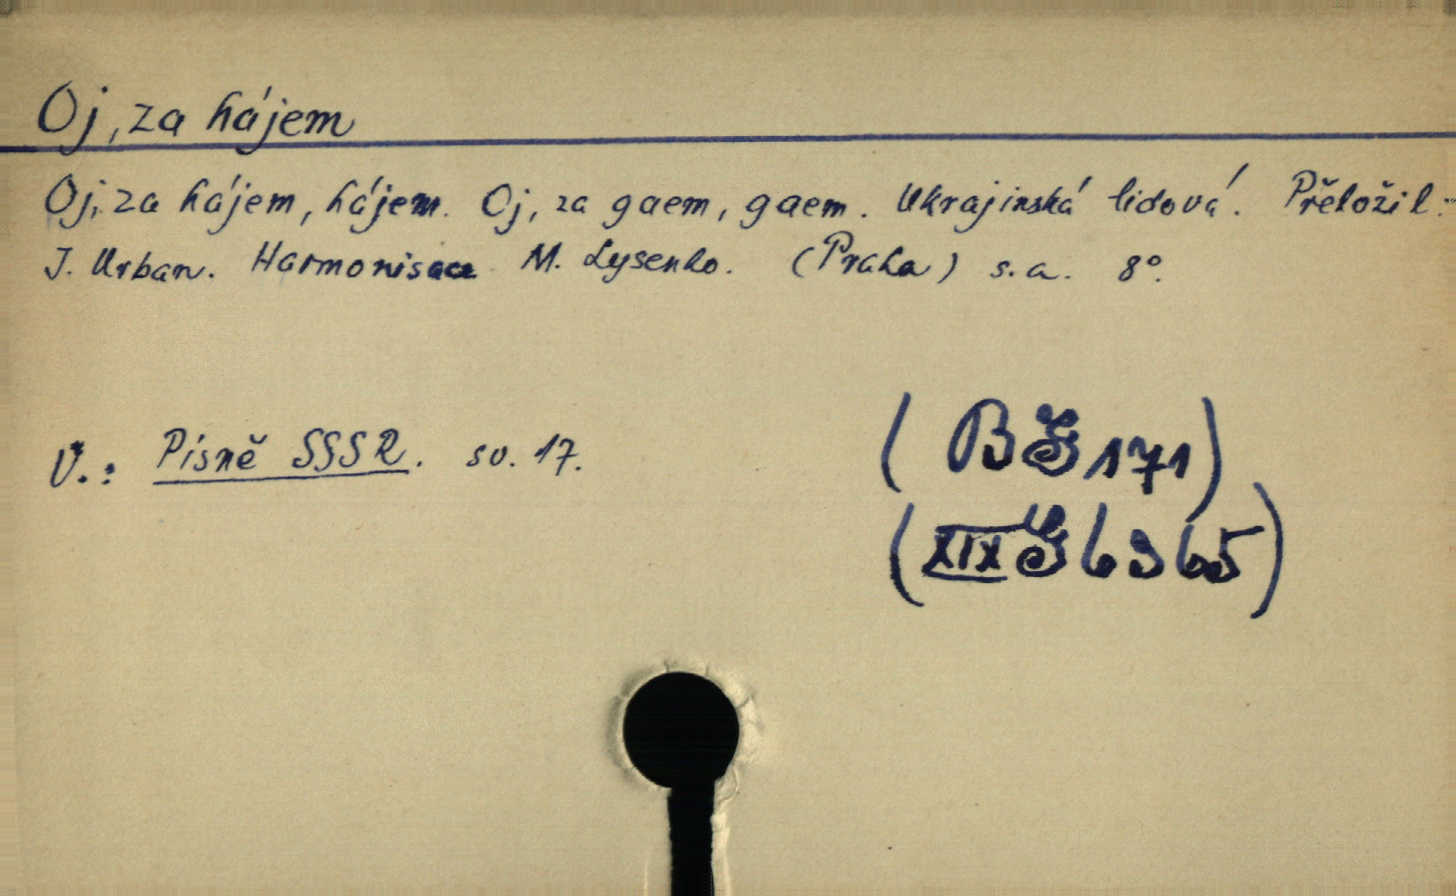 Oj, za hájem
Oj, za hájem, hájem. Oj, za gaem, gaem. Ukrajinská lidová. Přeložil:
J. Urban. Harmonisace M. Lysenko. (Praha) s. a. 8°.
V.: Písně SSSR. sv. 17.
(BG 171)
(XIX G 6365)